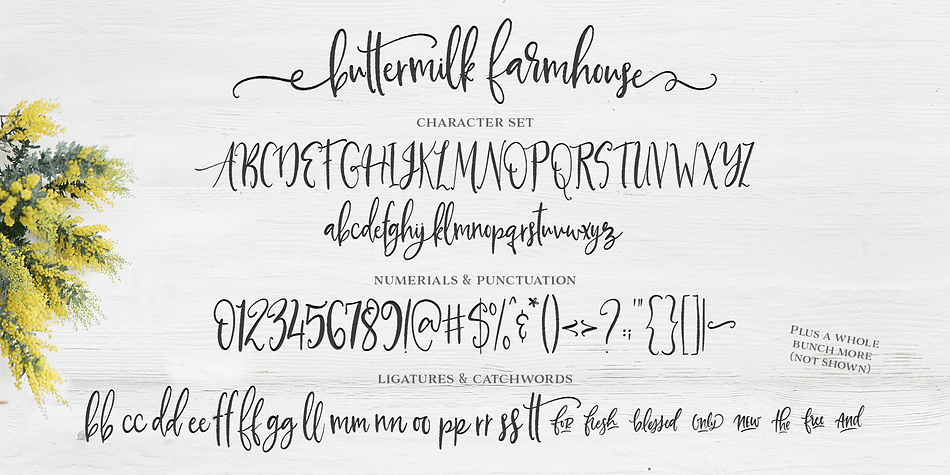 buttermilk farmhouse
CHARACTER SET
ABCDEFGHIJKLMNOPQRSTUVWXYZ
abcdefghijklmnopqrstuvwxyz
NUMERIALS & PUNCTUATION
0123456789!@#$%^&*()<>?:;'"{}[]|~
PLUS A WHOLE
BUNCH MORE
(NOT SHOWN)
LIGATURES & CATCHWORDS
bb cc dd ee ff ff gg ll mm nn oo pp rr ss tt for fresh blessed only new the free and